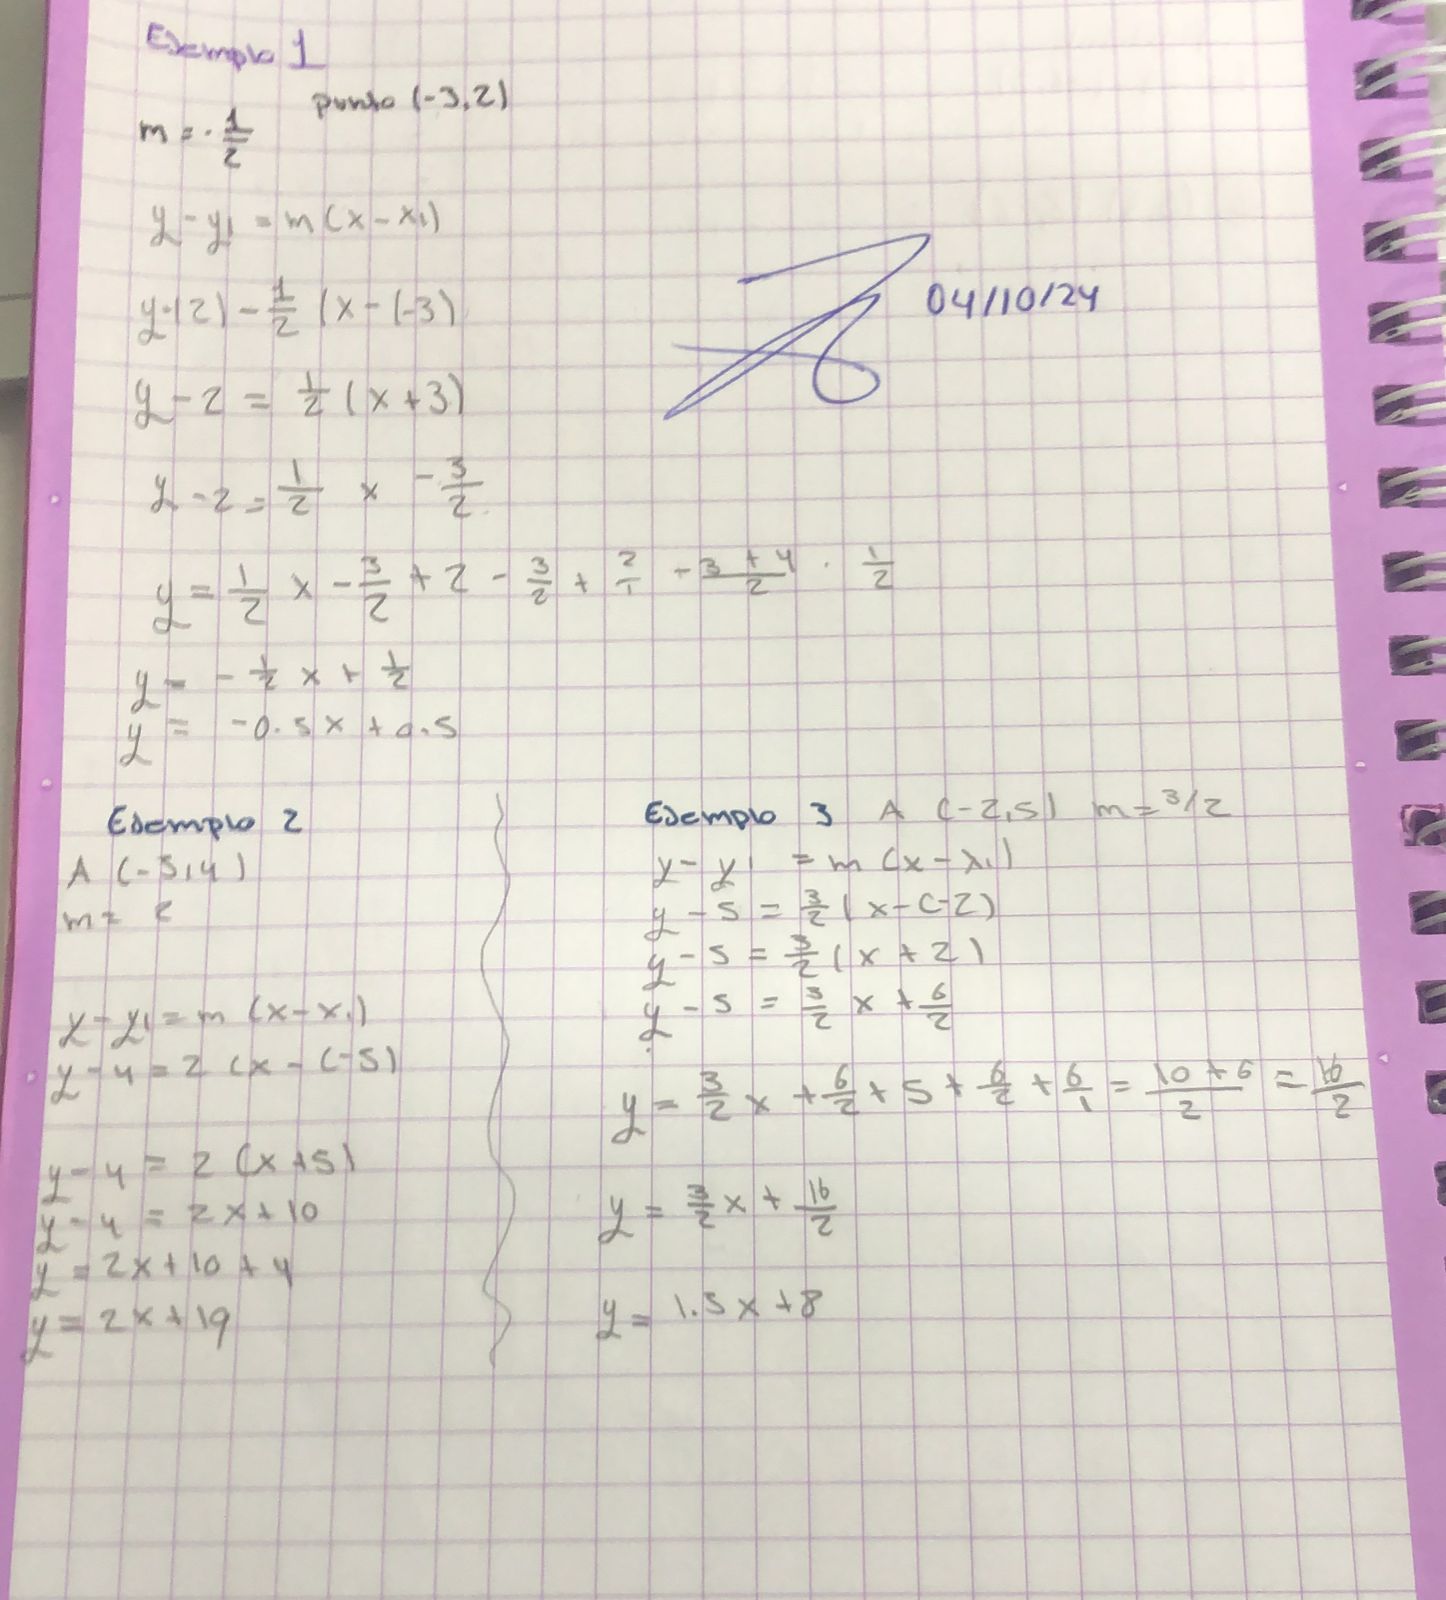 Ejemplo 1
m = -1/2 punto (-3,2)
y - y1 = m (x - x1)
y-(2) - 1/2 (x - (-3)
y - 2 = 1/2 (x + 3)
y - 2 = 1/2 x - 3/2
y = 1/2 x - 3/2 + 2 - 3/2 + 2/1 - 3 + 4/2 . 1/2
y = - 1/2 x + 1/2
y = -0.5x + 0.5
04/10/24
Ejemplo 2
A (-5,4)
m = 2
y - y1 = m (x - x1)
y - 4 = 2 (x - (-5)
y - 4 = 2 (x + 5)
y - 4 = 2x + 10
y = 2x + 10 + 4
y = 2x + 19
Ejemplo 3 A (-2,5) m = 3/2
y - y1 = m (x - x1)
y - 5 = 3/2 (x - (-2)
y - 5 = 3/2 (x + 2)
y - 5 = 3/2 x + 6/2
y = 3/2 x + 6/2 + 5 + 6/2 + 6/1 = 10 + 6/2 = 16/2
y = 3/2 x + 16/2
y = 1.5x + 8